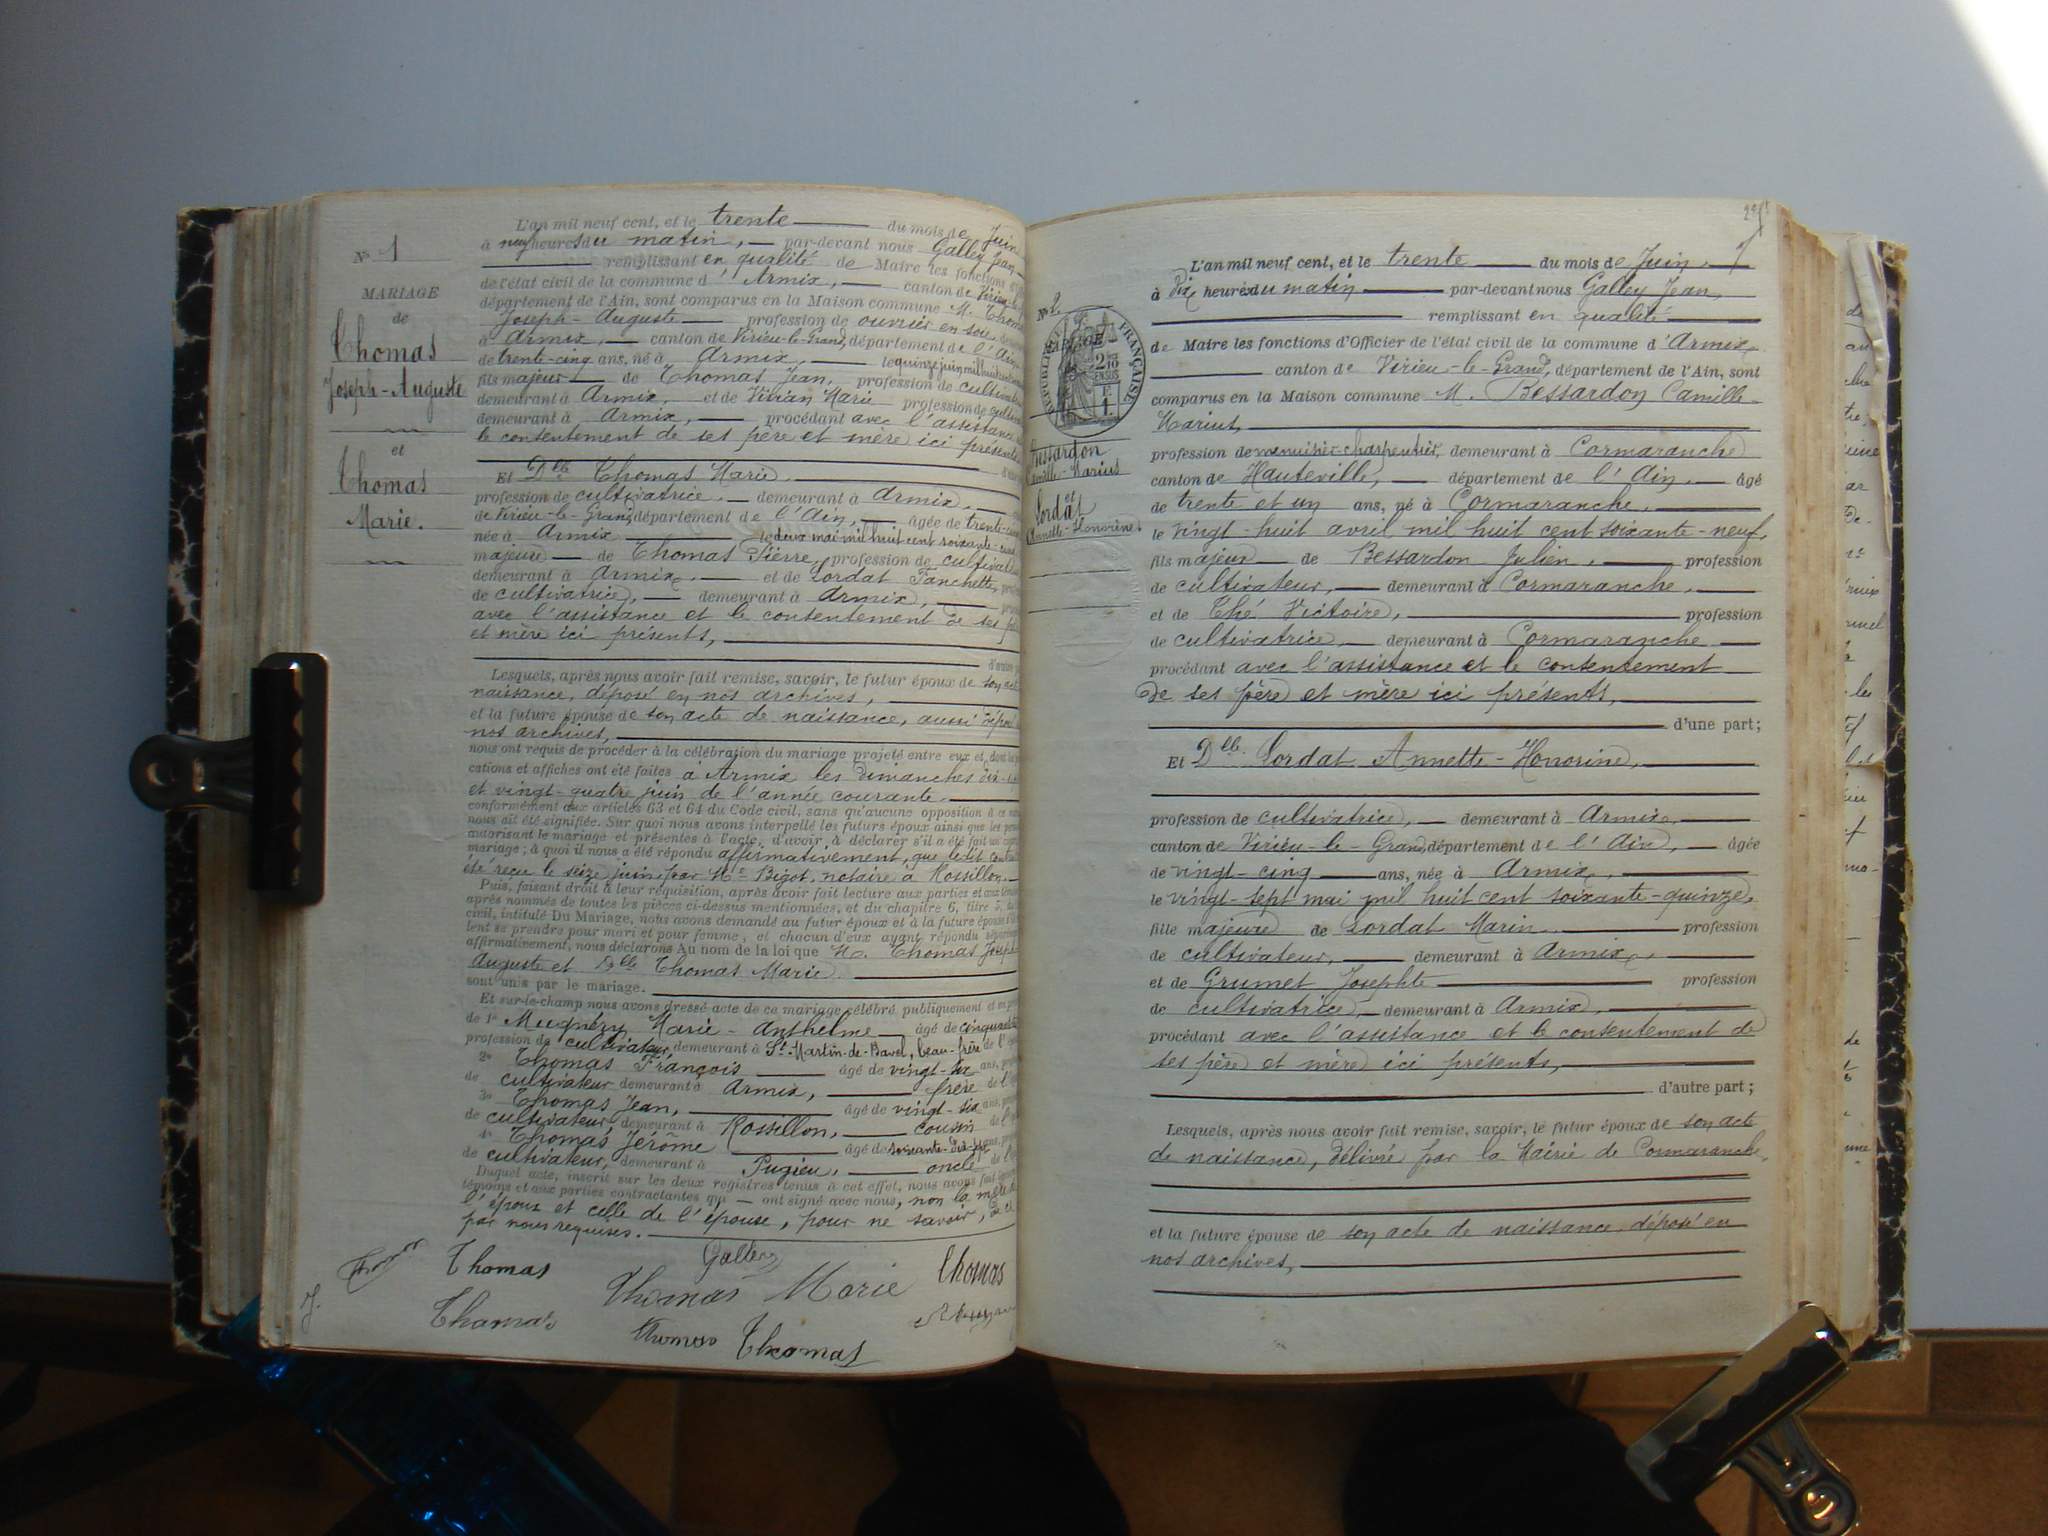 N° 1
MARIAGE
de
Thomas
Joseph-Auguste
et
Thomas
Marie.
L'an mil neuf cent, et le trente du mois de Juin
à neuf heures du matin, par-devant nous Galley Jean,
remplissant en qualité de Maire les fonctions
de l'état civil de la commune d'Armix, canton de Virieu-le-
département de l'Ain, sont comparus en la Maison commune M. Thomas
Joseph-Auguste profession de ouvrier en soie
à Armix, canton de Virieu-le-Grand, département de l'Ain
de trente-cinq ans, né à Armix, le quinze juin mil huit
fils majeur de Thomas Jean, profession de cultivateur
demeurant à Armix, et de Vivian Marie profession de
demeurant à Armix, procédant avec l'assistance
le consentement de ses père et mère ici présents
Et Dlle Thomas Marie
profession de cultivatrice, demeurant à Armix,
de Virieu-le-Grand, département de l'Ain, âgée de trente-
née à Armix le deux mai mil huit cent soixante-
majeure de Thomas Pierre, profession de
demeurant à Armix, et de Lordat Fanchette,
de cultivatrice, demeurant à Armix,
avec l'assistance et le consentement de ses
et mère ici présents,
Lesquels, après nous avoir fait remise, savoir, le futur époux de son
naissance, déposé en nos archives,
et la future épouse de son acte de naissance, aussi
nos archives,
nous ont requis de procéder à la célébration du mariage projeté entre eux et dont
cations et affiches ont été faites à Armix les dimanches
et vingt-quatre juin de l'année courante.
conformément aux articles 63 et 64 du Code civil, sans qu'aucune opposition à
nous ait été signifiée. Sur quoi nous avons interpellé les futurs époux ainsi que les
autorisant le mariage et présentes à l'acte, d'avoir à déclarer s'il a été fait un
mariage ; à quoi il nous a été répondu affirmativement, que ledit
été reçu le seize juin par Me Bigot, notaire à Rossillon.
Puis, faisant droit à leur réquisition, après avoir fait lecture aux parties et aux
après nommés de toutes les pièces ci-dessus mentionnées, et du chapitre 6, titre 5,
civil, intitulé Du Mariage, nous avons demandé au futur époux et à la future épouse
lent se prendre pour mari et pour femme, et chacun d'eux ayant répondu
affirmativement, nous déclarons Au nom de la loi que M. Thomas Joseph
Auguste et Dlle Thomas Marie
sont unis par le mariage.
Et sur-le-champ nous avons dressé acte de ce mariage célébré publiquement
de 1° Marie-Anthelme âgé de
profession de cultivateur, demeurant à St-Martin-de-Bavel, beau-frère de
2° Thomas François âgé de vingt-
de cultivateur demeurant à Armix, frère de
3° Thomas Jean, âgé de vingt-six ans,
de cultivateur, demeurant à Rossillon, cousin de
4° Thomas Jérôme âgé de ans,
de cultivateur, demeurant à Pugieu, oncle de
Duquel acte, inscrit sur les deux registres tenus à cet effet, nous avons fait
témoins et aux parties contractantes qui ont signé avec nous, non la mère
l'époux et celle de l'épouse, pour ne savoir, de
par nous requises.
Thomas Thomas Galley
Thomas Marie Thomas
Thomas
Thomas Thomas
N° 2
RÉPUBLIQUE FRANÇAISE
Bessardon
Camille-Marius
et
Lordat
Annette-Honorine
L'an mil neuf cent, et le trente du mois de Juin
à dix heures du matin par-devant nous Galley Jean,
remplissant en qualité
de Maire les fonctions d'Officier de l'état civil de la commune d'Armix,
canton de Virieu-le-Grand, département de l'Ain, sont
comparus en la Maison commune M. Bessardon Camille-
Marius,
profession de menuisier-charpentier, demeurant à Cormaranche
canton de Hauteville, département de l'Ain, âgé
de trente et un ans, né à Cormaranche,
le vingt-huit avril mil huit cent soixante-neuf,
fils majeur de Bessardon Julien, profession
de cultivateur, demeurant à Cormaranche,
et de Thé Victoire, profession
de cultivatrice, demeurant à Cormaranche
procédant avec l'assistance et le consentement
de ses père et mère ici présents,
d'une part;
Et Dlle Lordat Annette-Honorine,
profession de cultivatrice, demeurant à Armix,
canton de Virieu-le-Grand, département de l'Ain, âgée
de vingt-cinq ans, née à Armix,
le vingt-sept mai mil huit cent soixante-quinze,
fille majeure de Lordat Marin profession
de cultivateur, demeurant à Armix,
et de Grumet Josephte profession
de cultivatrice, demeurant à Armix,
procédant avec l'assistance et le consentement de
ses père et mère ici présents,
d'autre part;
Lesquels, après nous avoir fait remise, savoir, le futur époux de son acte
de naissance, délivré par la Mairie de Cormaranche,
et la future épouse de son acte de naissance, déposé en
nos archives,